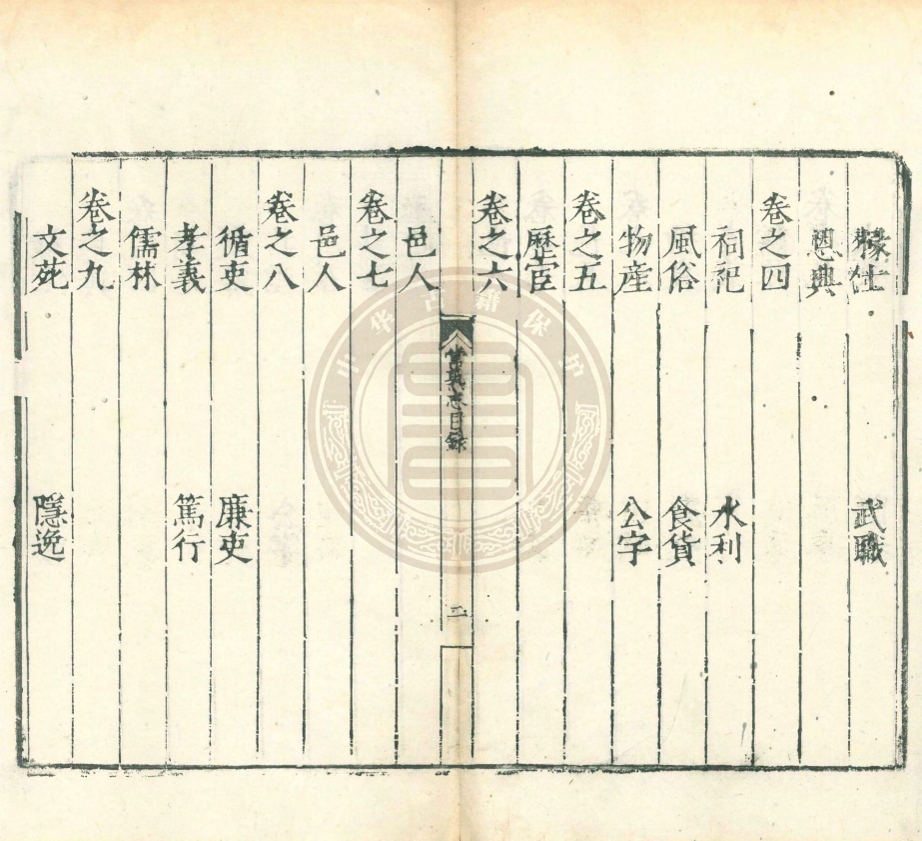 掾仕　武職
恩典
卷之四
祠祀　水利
風俗　食貨
物産　公字
卷之五
歷宦
卷之六
常熟志目録　二
邑人
卷之七
邑人
卷之八
循吏　廉吏
孝義　篤行
儒林
卷之九
文苑　隱逸
中华古籍保护